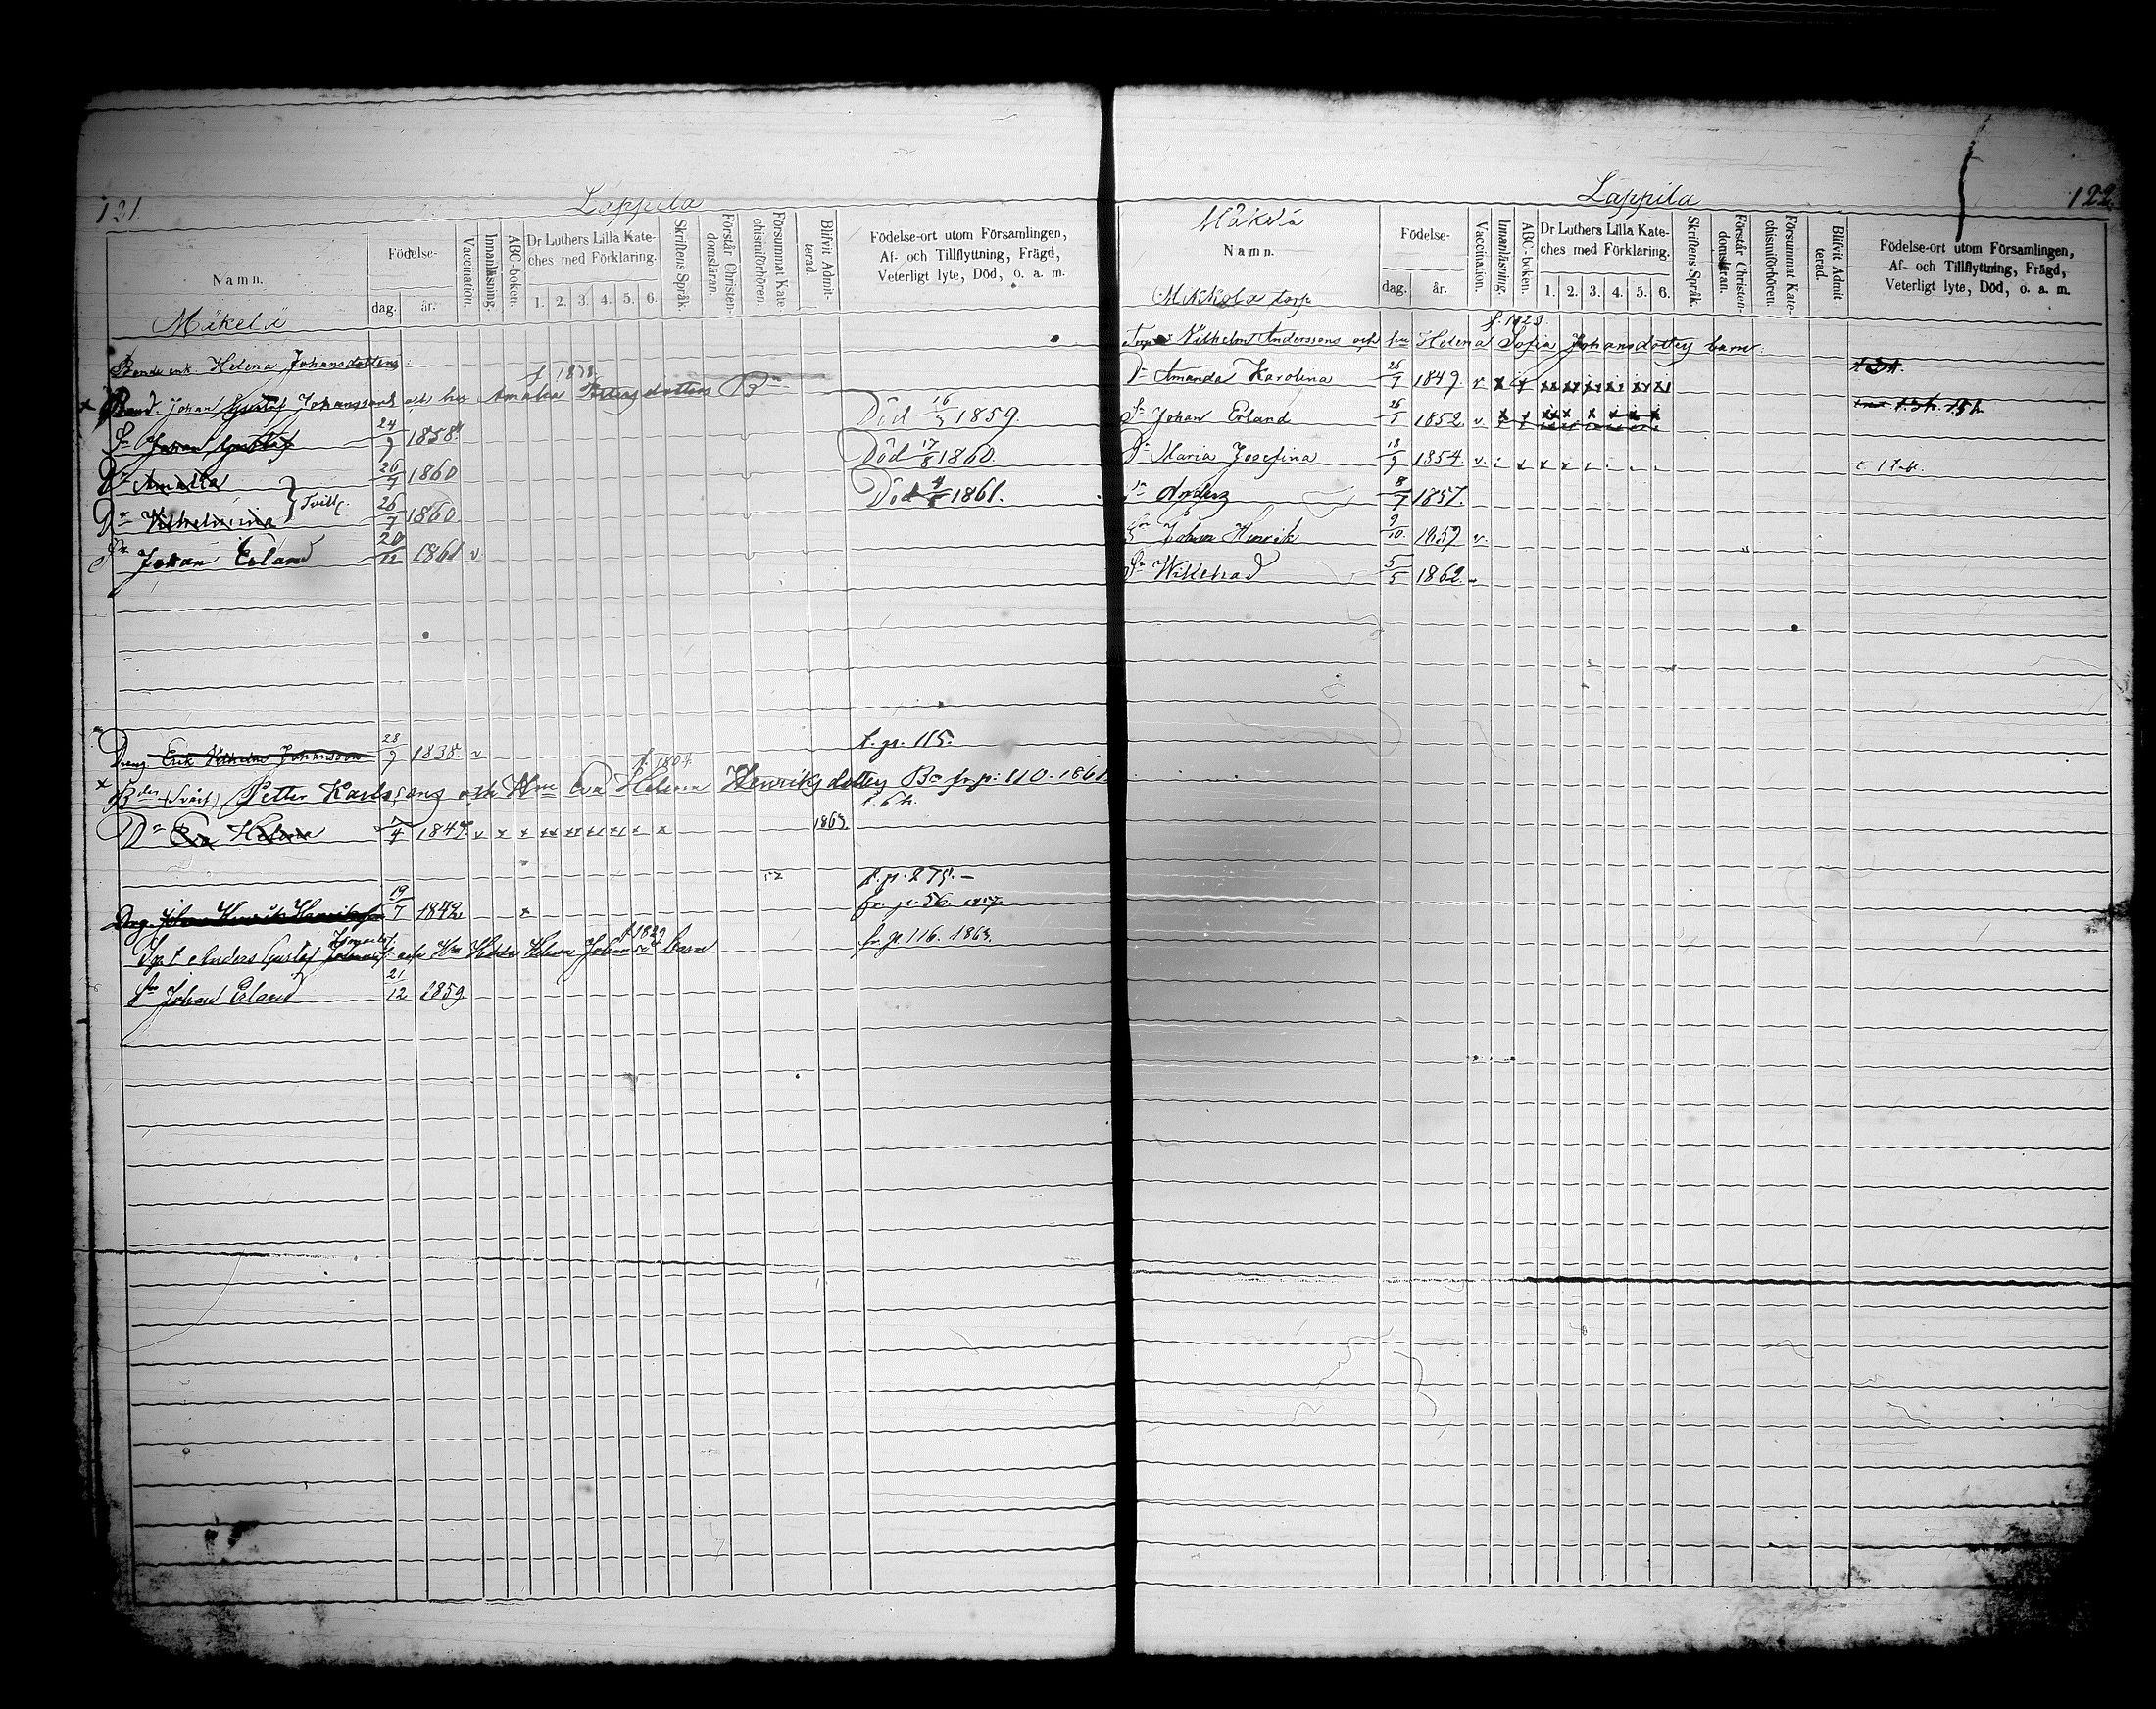 121.
Lappila
Namn.
Födelse-
dag.
år.
Vaccination.
Innanläsning.
ABC-boken.
Dr Luthers Lilla Kate-
ches med Förklaring.
1. 2. 3. 4. 5. 6.
Skriftens Språk.
Förstår Christen-
domsläran.
Försummat Kate-
chismiförhören.
Blifvit Admit-
terad.
Födelse-ort utom Församlingen,
Af- och Tillflyttning, Frägd,
Veterligt lyte, Död, o. a. m.
Mäkelä
Bonde enk. Helena Johansdotters
f. 1838.
Bond. Johan Gustaf Johanssons och hu Amalia Bn
Sn Johan Gustaf 24/9 1858. Död 16/3 1859.
Dr Amalia 26/7 1860 Död 17/8 1860.
Tvill.
Dr Vilhelmina 26/7 1860 Död 1861.
Sn Johan Erland 20/12 1861 v
Dreng. Erik Vilhelm Johansson 28/9 1838. v. t. p. 115.
f. 1804
Petter Karlssons och Hun Eva Helena Henriksdotters Bn fr. p. 110-1861
t. 6 h.
Dr Eva Helena 7/4 1847. v x x xx xx x 1863.
t. p. 275.-
Drg. Johan Henrik Henriksson 19/7 1842 x fr. p. 56.
f 1829
Anders Gustaf och Hun Helena barn fr. p. 116. 1863.
Sn Johan Erland 21/12 1859.
Lappila
122.
Namn.
Födelse-
dag.
år.
Vaccination.
Innanläsning.
ABC-boken.
Dr Luthers Lilla Kate-
ches med Förklaring.
1. 2. 3. 4. 5. 6.
Skriftens Språk.
Förstår Christen-
domsläran.
Försummat Kate-
chismiförhören.
Blifvit Admit-
terad.
Födelse-ort utom Församlingen,
Af- och Tillflyttning, Frägd,
Veterligt lyte, Död, o. a. m.
Mikkola torp
f. 1823.
Vilhelm Anderssons och hu Helena Sofia Johansdotters barn.
Dr Amanda Karolina 26/7 1849. v x x xx xx xx xx xx xx
Sn Johan Erland 26/1 1852. v.
Dr Maria Josefina 18/9 1854. v.
Sn Anders 8/7 1857.
Sn Johan Henrik 9/10. 1859 v.
Sn Wikehad 5/5 1862.